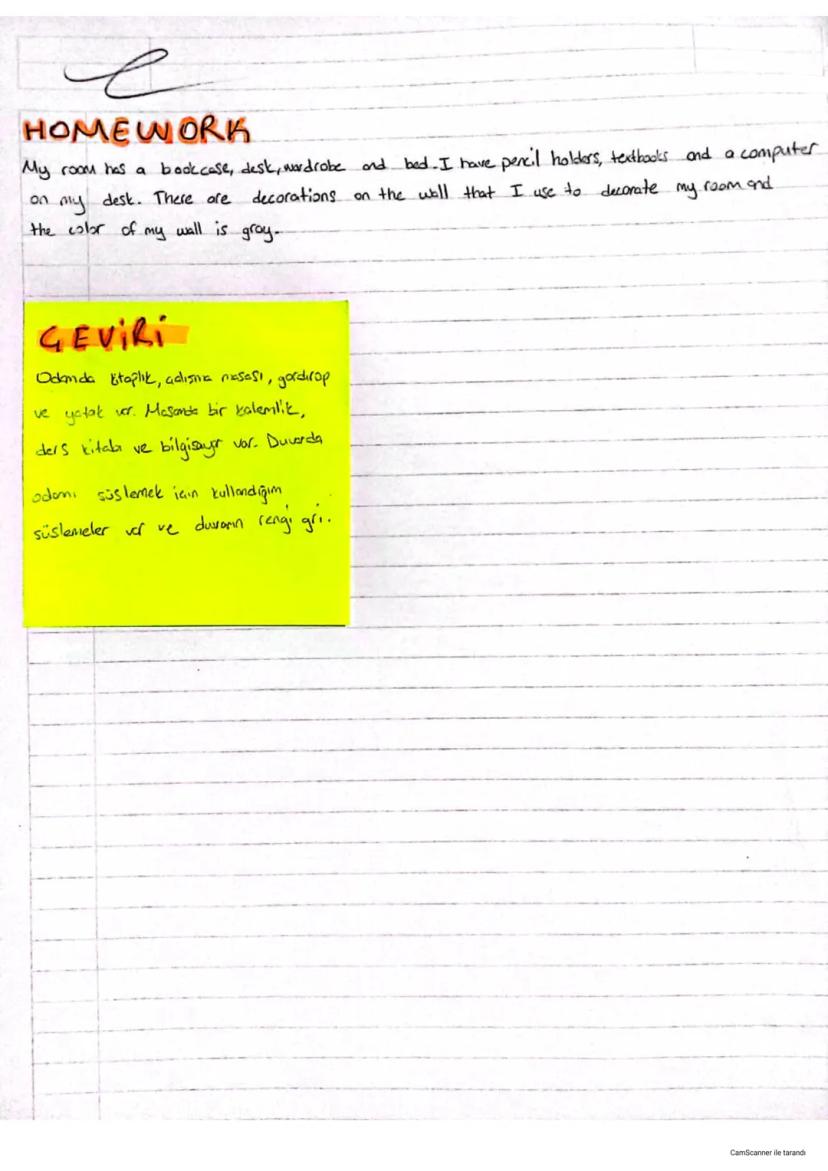 HOMEWORK
My room has a bookcase, desk, wardrobe and bed. I have pencil holders, textbooks and a computer
on my desk. There are decorations on the wall that I use to decorate my room and
the color of my wall is gray.
ÇEVİRİ
Odamda kitaplık, çalışma masası, gardırop
ve yatak var. Masamda bir kalemlik,
ders kitabı ve bilgisayar var. Duvarda
odamı süslemek için kullandığım
süslemeler var ve duvarın rengi gri.
CamScanner ile tarandı